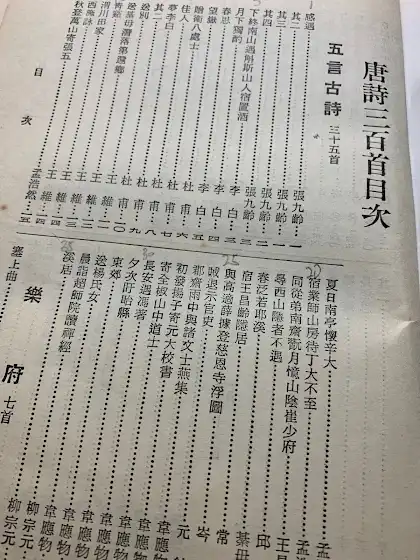 唐詩三百首目次
五言古詩 三十五首
感遇 張九齡 一
其二 張九齡 一
其三 張九齡 二
其四 張九齡 二
下終南山過斛斯山人宿置酒 李白 三
月下獨酌 李白 四
春思 李白 五
望嶽 杜甫 五
贈衛八處士 杜甫 六
佳人 杜甫 七
夢李白 杜甫 八
其二 杜甫 九
送別 王維 一〇
送綦毋潛落第還鄉 王維 一
青谿 王維 一
渭川田家 王維 一
西施詠 王維 一四
秋登萬山寄張五 孟浩然 一五
目次
夏日南亭懷辛大 孟
宿業師山房待丁大不至 孟
同從弟南齋翫月憶山陰崔少府 王昌
尋西山隱者不遇 邱
春泛若耶溪 綦毋
宿王昌齡隱居 常
與高適薛據登慈恩寺浮圖 岑
賊退示官吏 元
郡齋雨中與諸文士燕集 韋
初發揚子寄元大校書 韋應
寄全椒山中道士 韋應物
長安遇馮著 韋應物
夕次盱眙縣 韋應物
東郊 韋應物
送楊氏女 韋應物
晨詣超師院讀禪經 柳宗元
溪居 柳宗元
樂府 七首
塞上曲